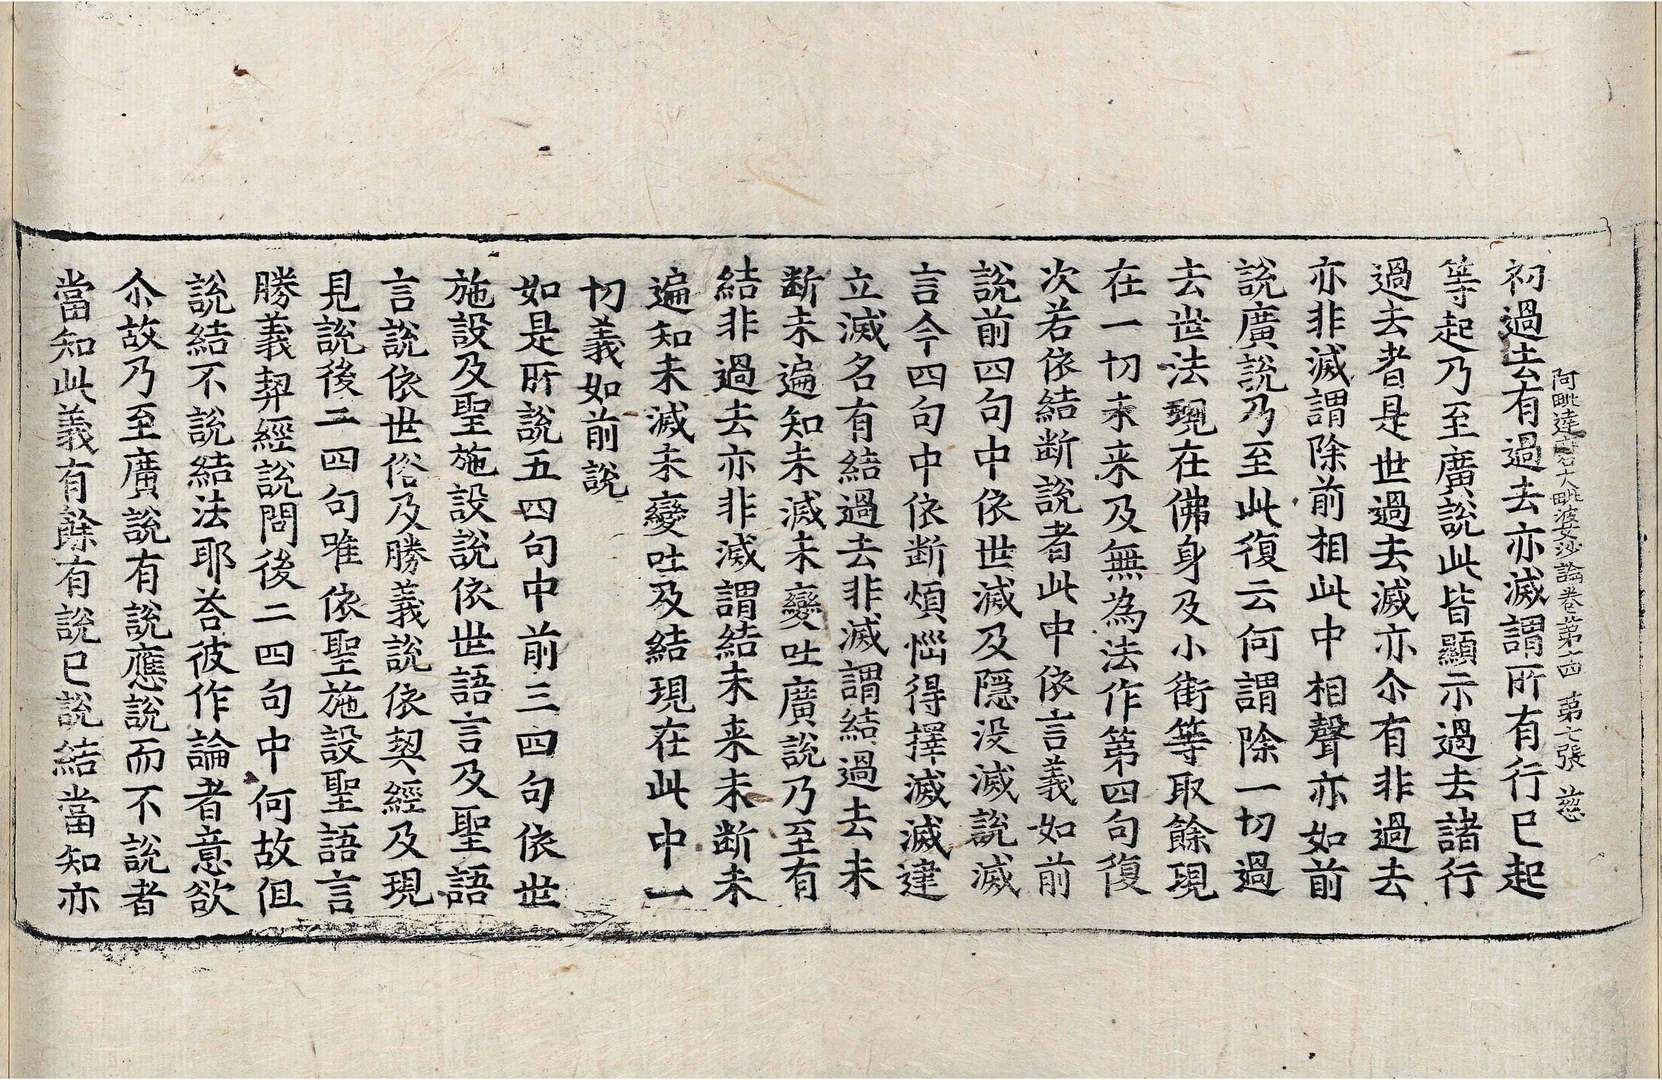 阿毗達磨大毗婆沙論卷第六十四 第七張 慈
初過去有過去亦滅謂所有行已起
等起乃至廣說此皆顯示過去諸行
過去者是世過去滅亦尒有非過去
亦非滅謂除前相此中相聲亦如前
說廣說乃至此復云何謂除一切過
去世法現在佛身及小街等取餘現
在一切未来及無為法作第四句復
次若依結断說者此中依言義如前
說前四句中依世滅及隱没滅說滅
言今四句中依断煩惱得擇滅滅建
立滅名有結過去非滅謂結過去未
断未遍知未滅未變吐廣說乃至有
結非過去亦非滅謂結未来未断未
遍知未滅未變吐及結現在此中一
切義如前說
如是所說五四句中前三四句依世
施設及聖施設說依世語言及聖語
言說依世俗及勝義說依契經及現
見說後二四句唯依聖施設聖語言
勝義契經說問後二四句中何故但
說結不說結法耶荅彼作論者意欲
尒故乃至廣說有說應說而不說者
當知此義有餘有說已說結當知亦